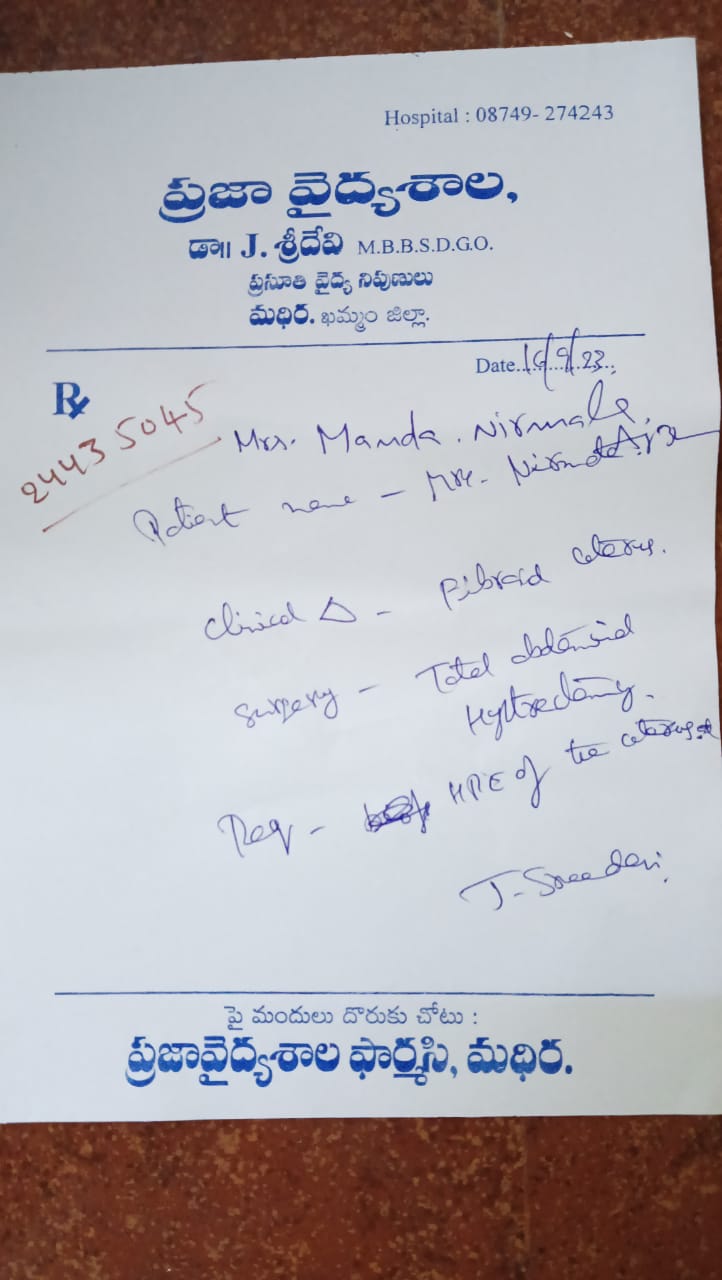 Hospital : 08749- 274243
ప్రజా వైద్యశాల,
డా॥ J. శ్రీదేవి M.B.B.S.D.G.O.
ప్రసూతి వైద్య నిపుణులు
మధిర. ఖమ్మం జిల్లా.
Date. 16/9/23.
Rx
24435045
Mrs. Manda. Nirmala.
Patient name - Mrs.
Clinical Δ - Fibroid uterus.
Surgery - Total abdominal
Hystrectomy.
Req - HPE of the uterus.
J. Sreedevi.
పై మందులు దొరుకు చోటు :
ప్రజావైద్యశాల ఫార్మసి, మధిర.